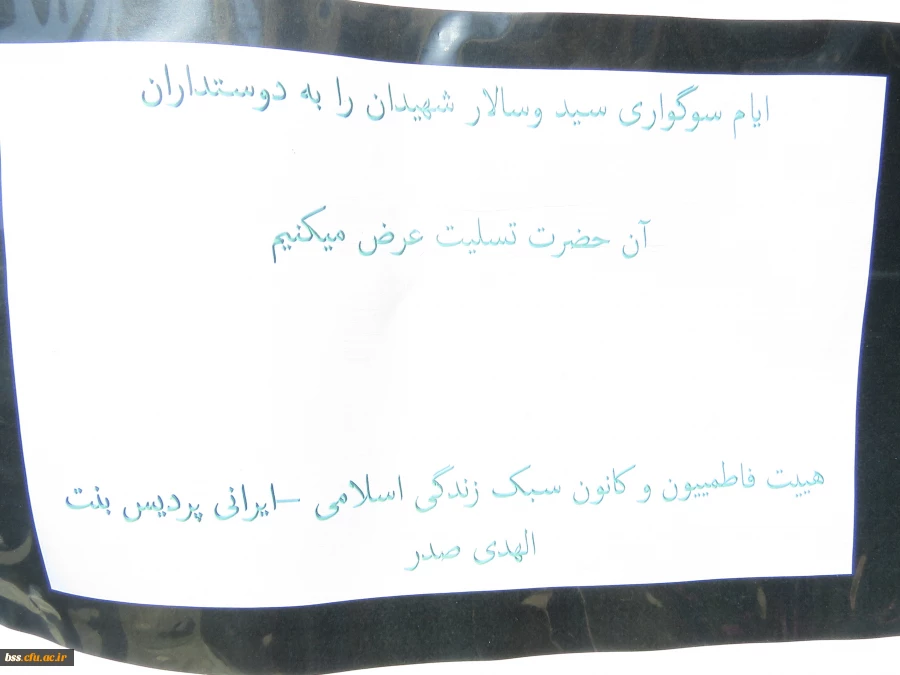 ایام سوگواری سید وسالار شهیدان را به دوستداران
آن حضرت تسلیت عرض میکنیم
هییت فاطمییون و کانون سبک زندگی اسلامی –ایرانی پردیس بنت
الهدی صدر
bss.cfu.ac.ir